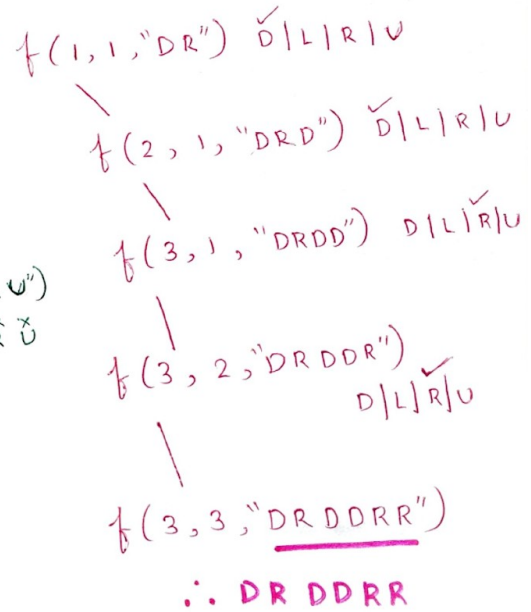 f(1,1,"DR") D|L|R|U
f(2,1,"DRD") D|L|R|U
f(3,1,"DRDD") D|L|R|U
U")
U
f(3,2,"DRDDR")
D|L|R|U
f(3,3,"DRDDRR")
∴ DRDDRR